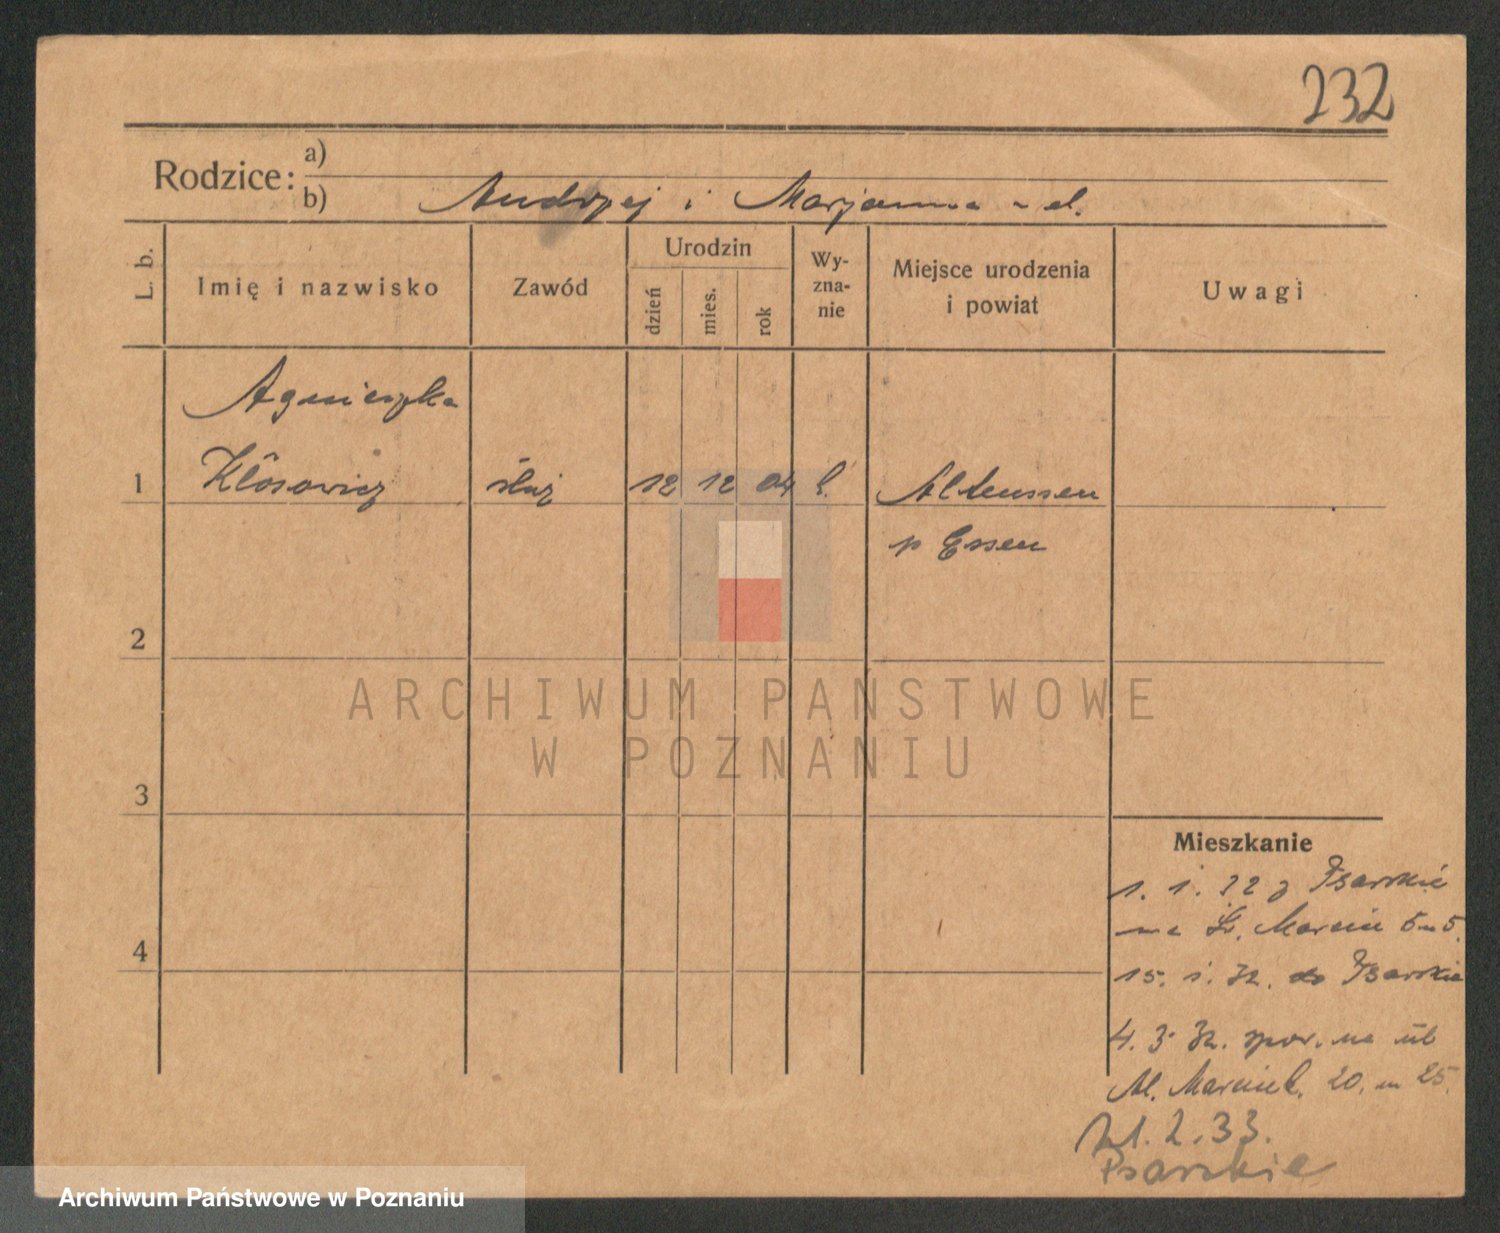 232
Rodzice:
a)
b) Andrzej i Marjanna
L. b.
Imię i nazwisko
Zawód
Urodzin
dzień
mies.
rok
Wy-
zna-
nie
Miejsce urodzenia
i powiat
Uwagi
Agnieszka
1 Kłosowicz służ 12 12 04 Altenessen
p Essen
2
3
4
ARCHIWUM PAŃSTWOWE
W POZNANIU
Mieszkanie
1. 1. z Psarskie
na Św. Marcin 5 m 5.
15. 1. 32. do Psarskie
4. 3. 32. spow. na ul
Marcink. 20. m 25.
1. 2. 33.
Psarskie
Archiwum Państwowe w Poznaniu